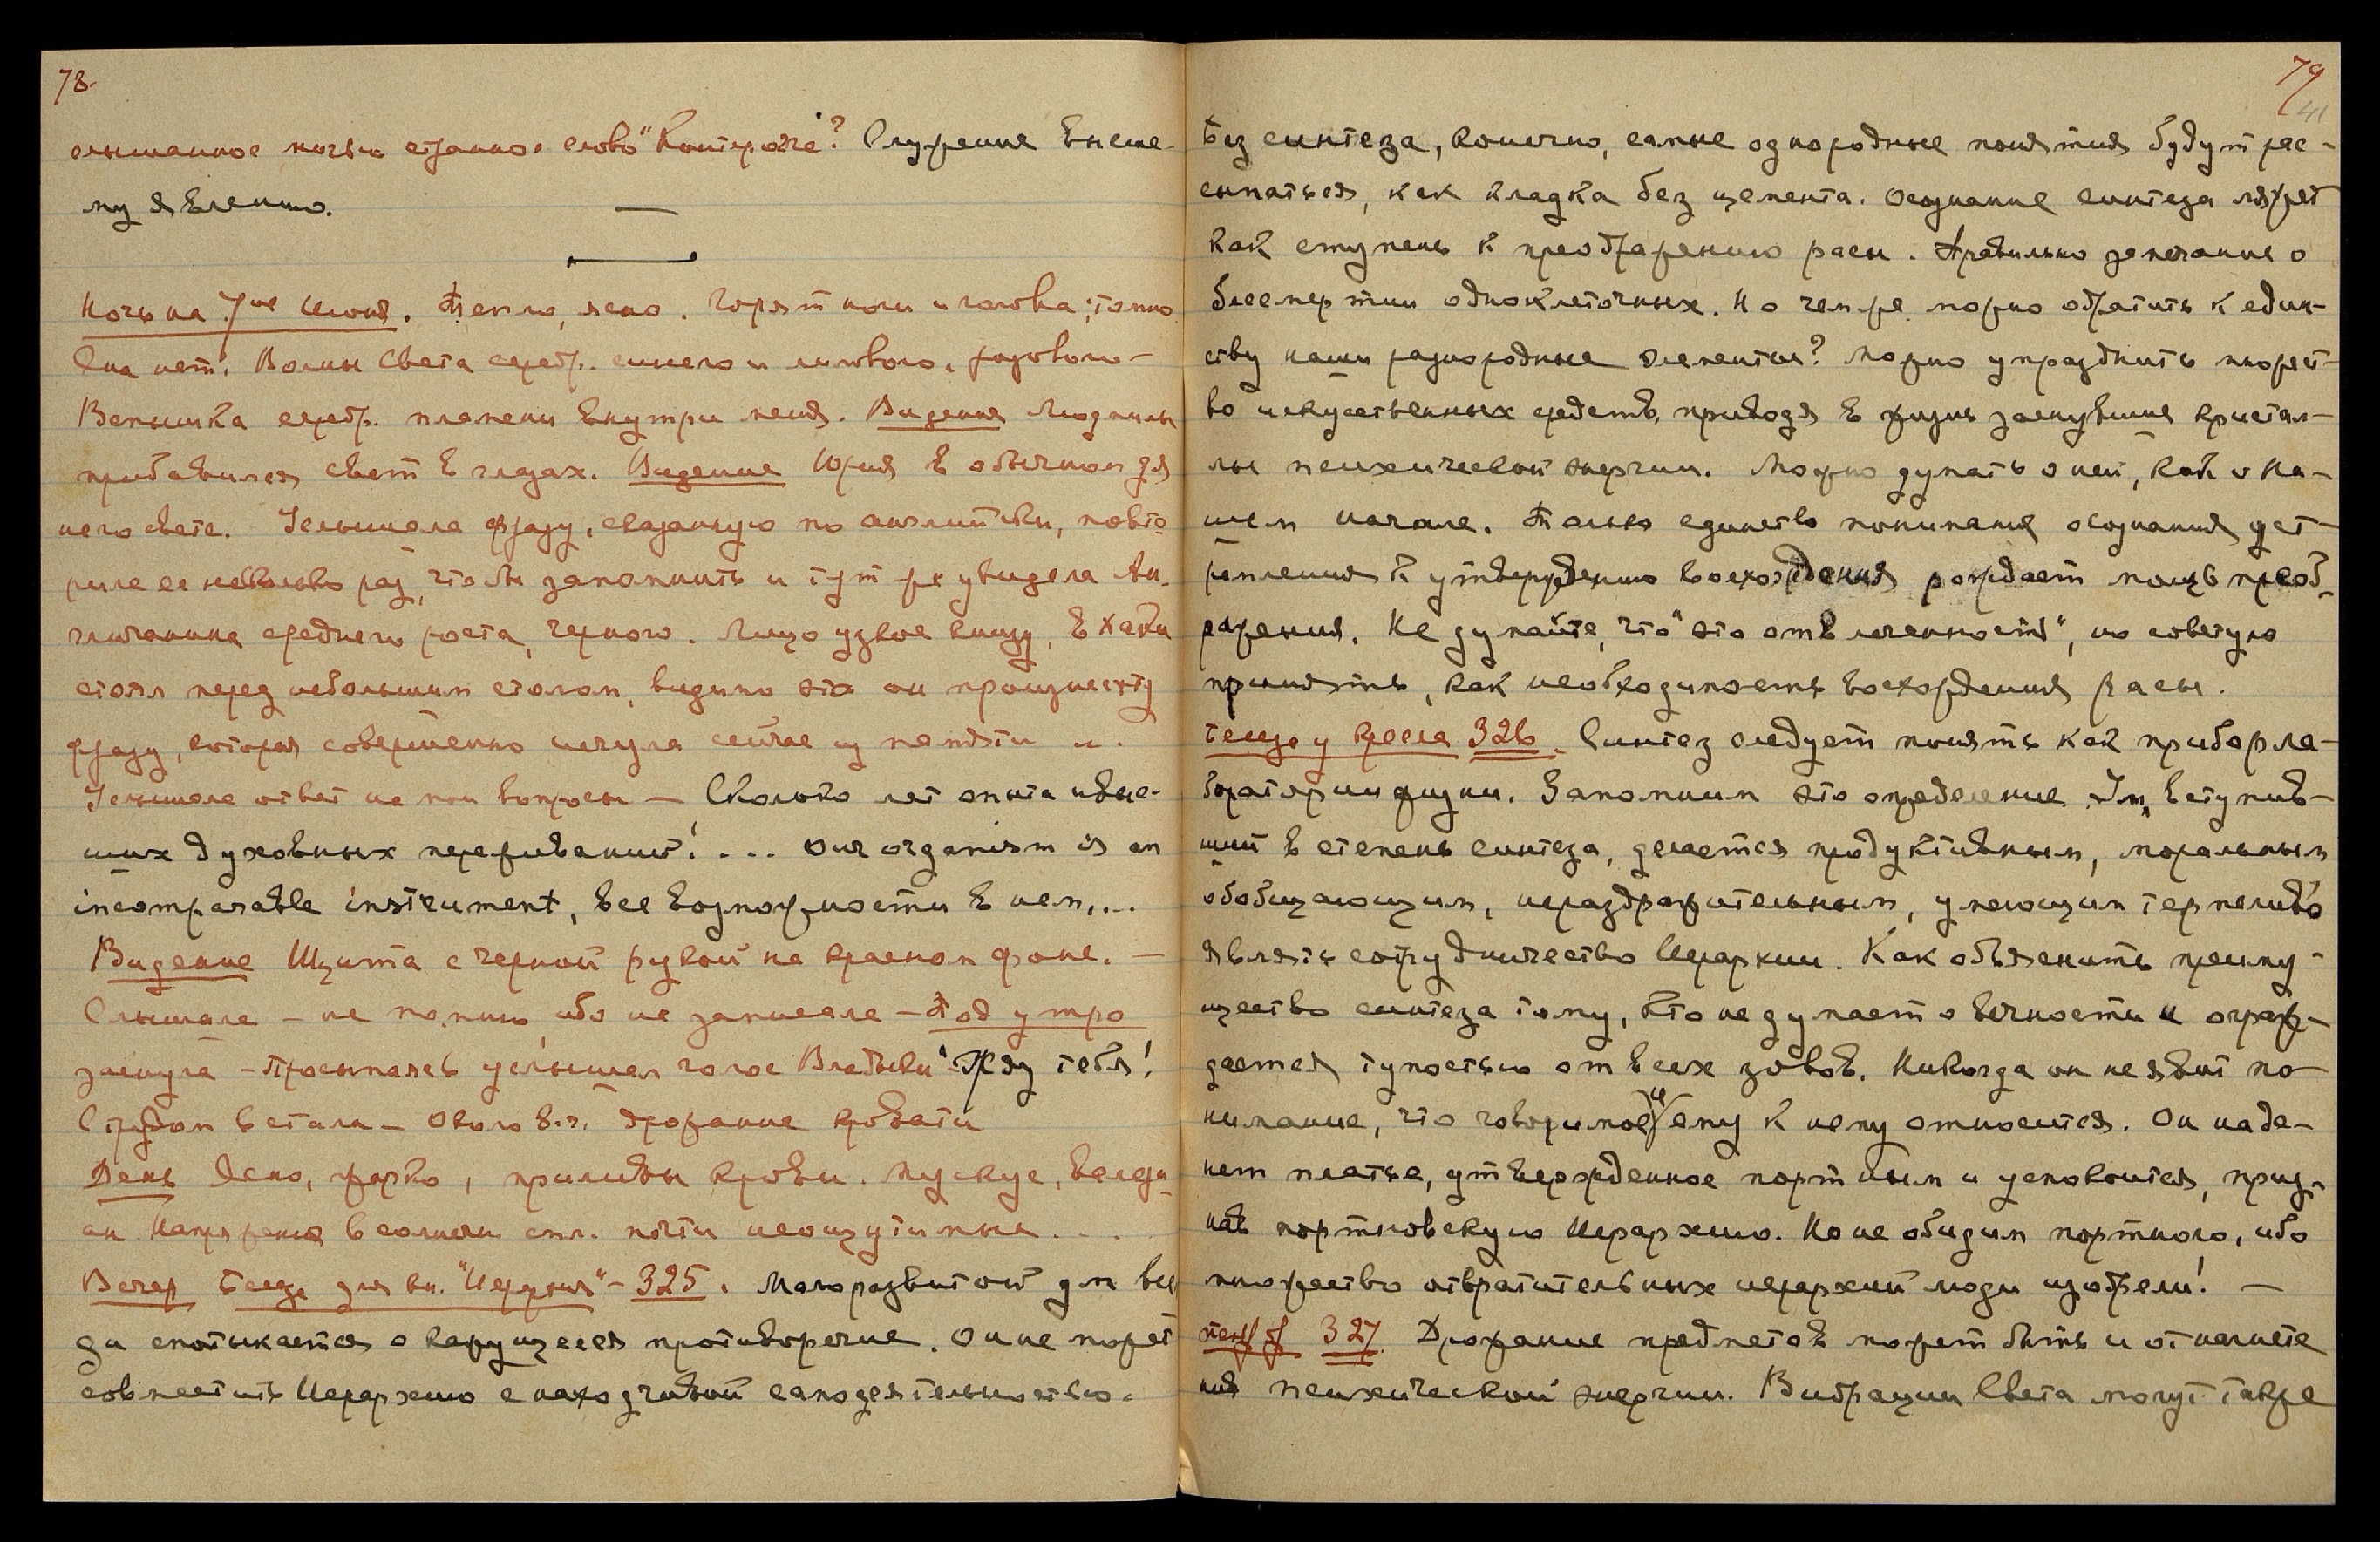 78.
слышанное ночью странное слово "Контераче"? Служение Высше-
му явлению. —
Ночь на 7ое Июня. Тепло, ясно. Горят ноги и головка; томно
Сна нет. Волны Света серебр. синего и лилового, розового —
Вспышка серебр. пламени внутри меня. Видение Людмилы
прибавился свет в глазах. Видение Юрия в обычном для
него свете. Услышала фразу, сказанную по английски, повто-
рила ее несколько раз, чтобы запомнить и тут же увидела Ан-
гличанина среднего роста, черного. Лицо узкое книзу, в хаки
стоял перед небольшим столом, видимо это он произнес эту
фразу, которая совершенно исчезла сейчас из памяти ...
Услышала ответ на мои вопросы — Сколько лет опыта и выс-
ших духовных переживаний! ... our organism is an
incomparable instrument, все возможности в нем....
Видение Щита с черной рукой на красном фоне. —
Слышала — не помню ибо не записала — Под утро
заснула — Просыпаясь услышал голос Владыки "Жду тебя!
С трудом встала — Около 8.ч. дрожание кровати
День Ясно, жарко, приливы крови. Мускус, валери-
ан. Напряжения в солнечн. спл. почти неощутимые ...
Вечер Беседа для кн. "Иерархия" — 325. Малоразвитой ум все
да спотыкается о кажущееся противоречие. Он не может
совместить Иерархию с находчивой самодеятельностью.
79
41
Без синтеза, конечно, самые однородные понятия будут рас-
сыпаться, как кладка без цемента. Осознание синтеза ляжет
как ступень к преображению расы. Правильно замечание о
бессмертии одноклеточных. Но чем же можно обратить к един-
ству наши разнородные элементы? Можно упразднить множест-
во искусственных средств, приводя в жизнь заснувшие кристал-
лы психической энергии. Можно думать о ней, как о На-
шем начале. Только единство понимания осознания уст-
ремления к утверждению восхождения рождает мощь преоб-
ражения. Не думайте, что "это отвлеченность", но советую
принять, как необходимость восхождения расы.
Беседа у кресла 326. Синтез следует понять как прибор ла-
боратории жизни. Запомним это определение. Ум, вступив-
ший в степень синтеза, делается продуктивным, моральным
обобщающим, нераздражительным, умеющим терпеливо
являть сотрудничество Иерархии. Как объяснить преиму-
щество синтеза тому, кто не думает о вечности и ограж-
дается тупостью от всех зовов. Никогда он не явит по-
нимание, что говоримое ему к нему относится. Он наде-
нет платье, утвержденное портным и успокоится, приз-
нав портновскую Иерархию. Но не обидим портного, ибо
множество отвратительных иерархий люди изобрели! —
327. Дрожание предметов может быть и от магнете-
ния психической энергии. Вибрации Света могут также